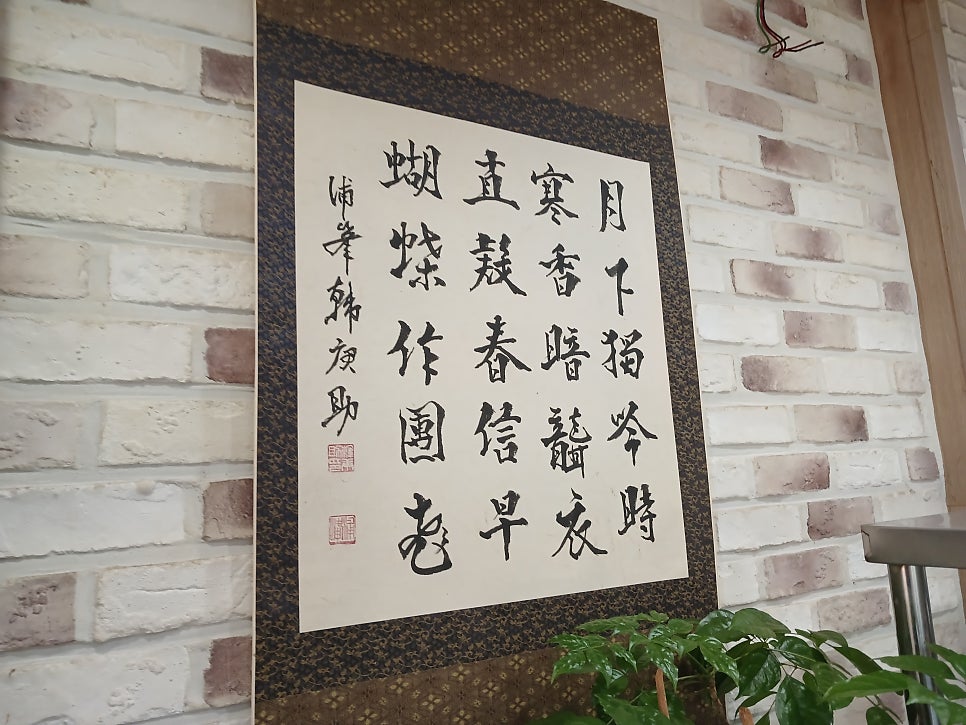 月下獨吟時
寒香暗襲衣
直疑春信早
蝴蝶作團飛
浦峯韓庚助